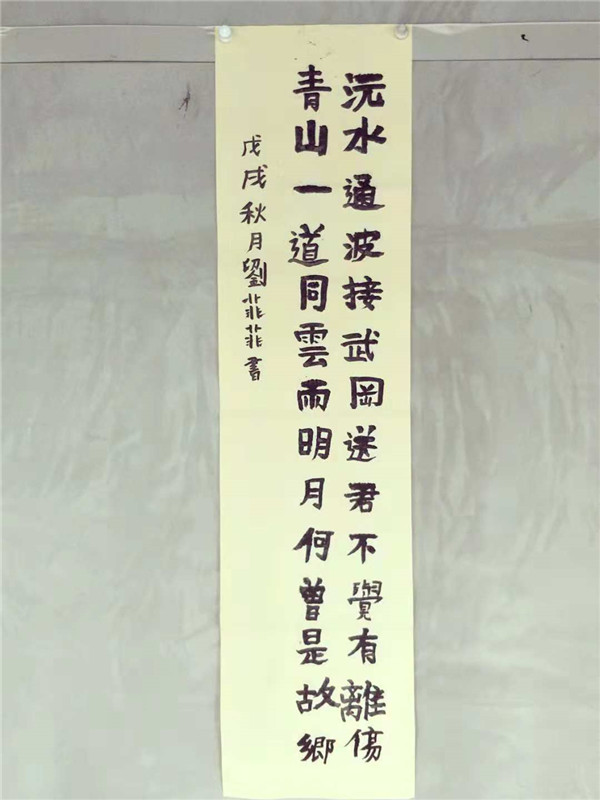 沅水通波接武岡送君不覺有離傷
青山一道同雲雨明月何曾是故鄉
戊戌秋月劉芸芸書